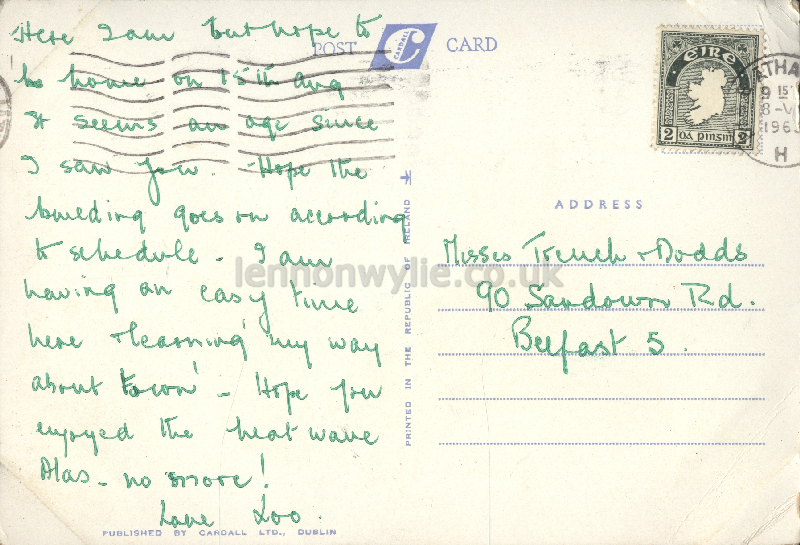 Here I am but hope to
be home on 15th Aug
It seems an age since
I saw you. Hope the
building goes on according
to schedule - I am
having an easy time
here & learning my way
about 'town' - Hope you
enjoyed the heat wave
Alas - no more!
Love Loo.
PUBLISHED BY CARDALL LTD., DUBLIN
POST CARD
CARDALL
PRINTED IN THE REPUBLIC OF IRELAND
EIRE
2 2
ATHA
9 15
8-V
196
H
ADDRESS
Misses Trench & Dodds
90 Sandown Rd.
Belfast 5.
lennonwylie.co.uk